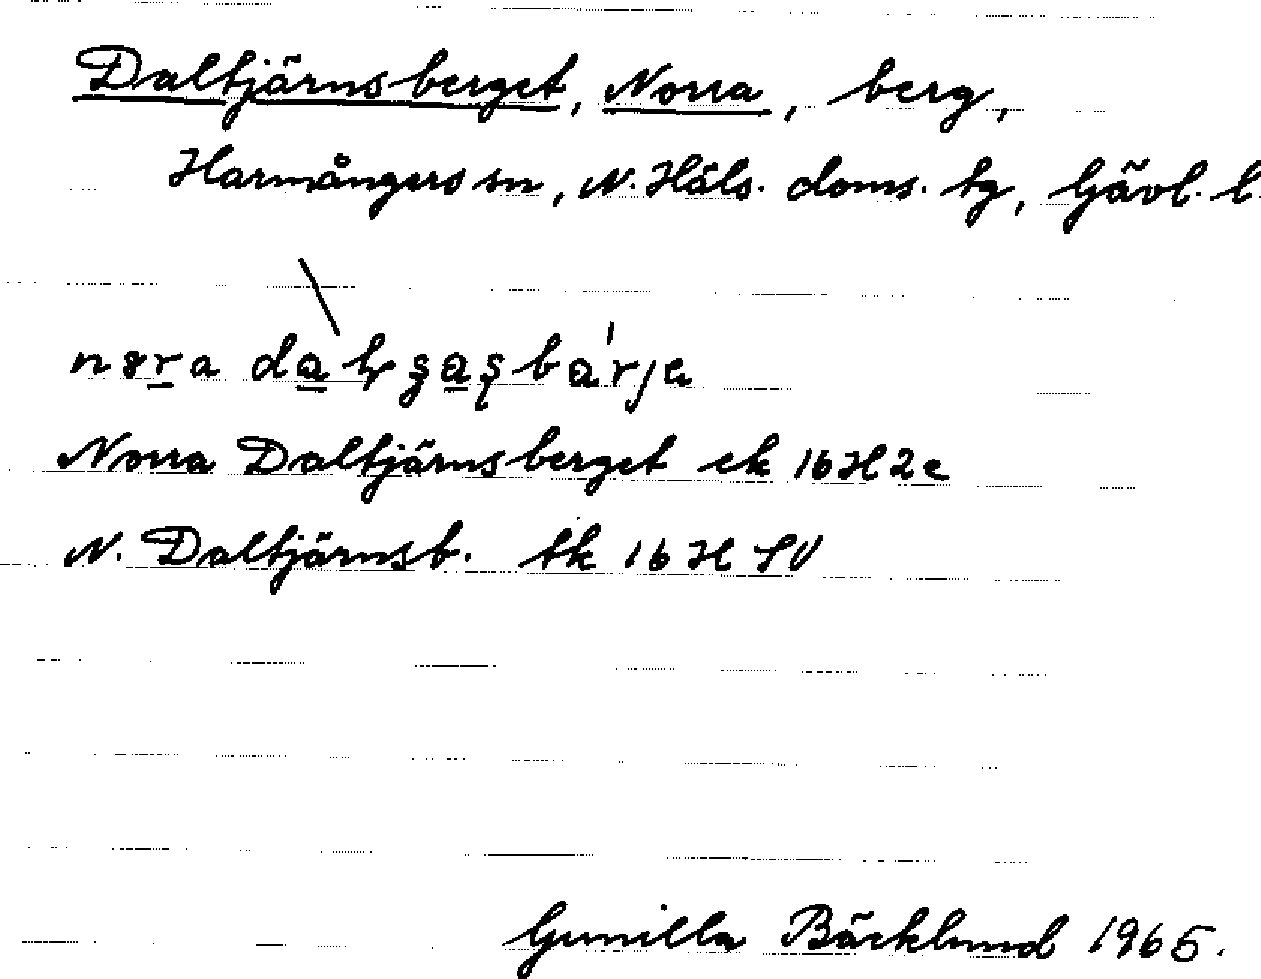 Daltjärnsberget, Norra, berg,
Harmångers sn, N. Häls. doms. tg, Gävl. l.
Norra Daltjärnsberget ek 16H2e
N. Daltjärnsb. tk 16H SV
Gunilla Bäcklund 1965.